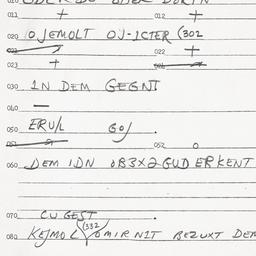 011 + 012 +
020 OJEMOLT OJ-ICTER (302
022 +
023 +
030 IN DEM GEGNT
040 —
050 ERU/L GOJ .
052 o
060 DEM IDN OB3X2GUD ERKENT
070 CU GEST .
080 KEJMOL (332 OMIR NIT BEZUXT DEM